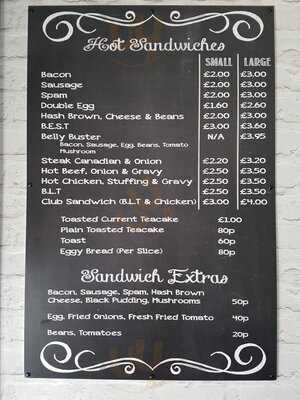 Hot Sandwiches
SMALL LARGE
Bacon £2.00 £3.00
Sausage £2.00 £3.00
Spam £2.00 £3.00
Double Egg £1.60 £2.60
Hash Brown, Cheese & Beans £2.00 £3.00
B.E.S.T £3.00 £3.60
Belly Buster N/A £3.95
Bacon, Sausage, Egg, Beans, Tomato
Mushroom
Steak Canadian & Onion £2.20 £3.20
Hot Beef, Onion & Gravy £2.50 £3.50
Hot Chicken, Stuffing & Gravy £2.50 £3.50
B.L.T £2.50 £3.50
Club Sandwich (B.L.T & Chicken) £3.00 £4.00
Toasted Current Teacake £1.00
Plain Toasted Teacake 80p
Toast 60p
Eggy Bread (Per Slice) 80p
Sandwich Extras
Bacon, Sausage, Spam, Hash Brown
Cheese, Black Pudding, Mushrooms 50p
Egg, Fried Onions, Fresh Fried Tomato 40p
Beans, Tomatoes 20p